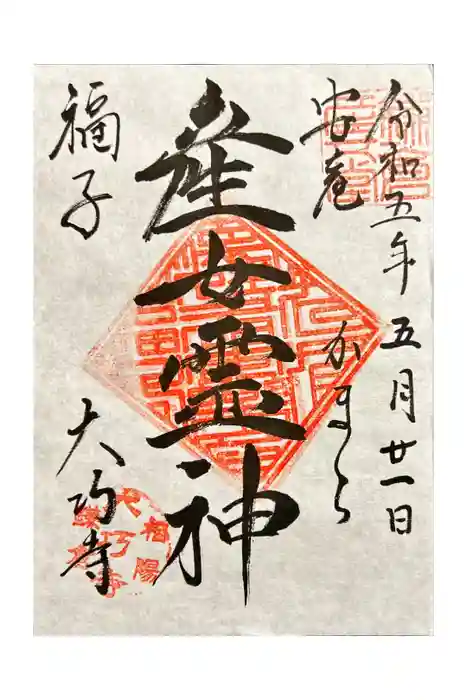 令和五年五月廿一日
安産
かまくら
産女霊神
福子
大巧寺
相陽